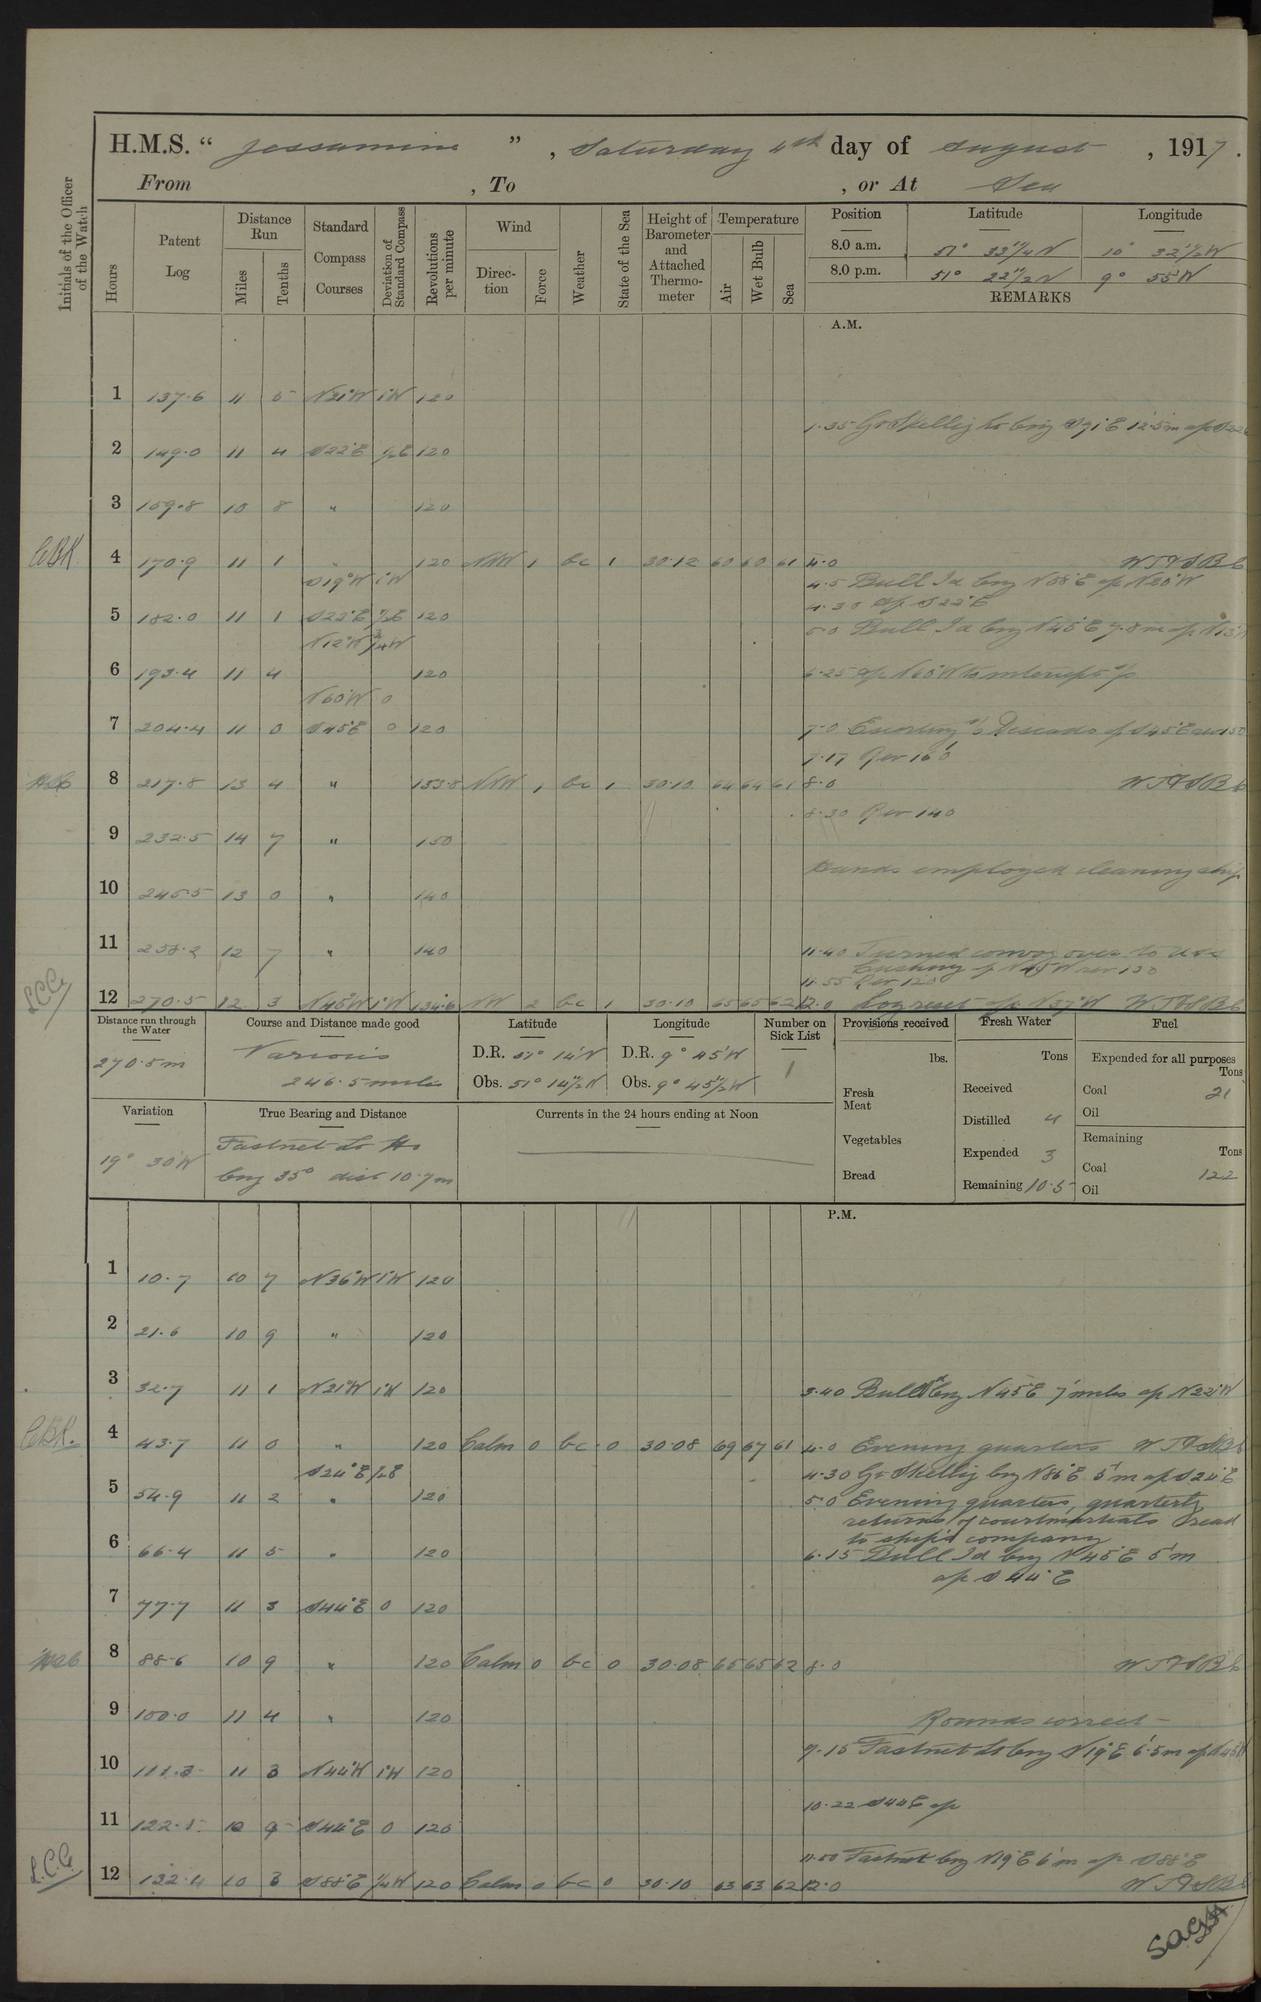 H.M.S. “ Jessamine ” , Saturday 4th day of August , 1917 .
From , To , or At Sea
Initials of the Officer of the Watch
Hours
Patent Log
Distance Run
Miles
Tenths
Standard Compass Courses
Deviation of Standard Compass
Revolutions per minute
Wind
Direction
Force
Weather
State of the Sea
Height of Barometer and Attached Thermometer
Temperature
Air
Wet Bulb
Sea
Position Latitude Longitude
8.0 a.m. 51° 33 1/4 N 10° 32 1/2 W
8.0 p.m. 51° 22 1/2 N 9° 55' W
REMARKS
A.M.
1 137.6 11 5 N21°W 1°W 120
1.35 Gt Skellig Lt brg S71°E 12.5m a/c S22E
2 149.0 11 4 S22°E 1/2E 120
3 159.8 10 8 " 120
CBK 4 170.9 11 1 " 120 NNW 1 bc 1 30.12 60 60 61 4.0 WTHSBb
S19°W 1°W
4.5 Bull Id brg N88°E a/c N20°W
4.30 a/c S22°E
5 182.0 11 1 S22°E 1/2E 120
5.0 Bull Id brg N45°E 7.8m a/c N13°W
N12°W 3/4W
6 193.4 11 4 120
6.25 a/c N60°W to intercept s/s
N60°W 0
7 204.4 11 0 S45E 0 120
7.0 Escorting s/s Deseado a/c S45E rev 150
7.17 Rev 160
8 217.8 13 4 " 153.8 NNW 1 bc 1 30.10 64 64 61 8.0 WTHSBb
8.30 Rev 140
9 232.5 14 7 " 150
Hands employed cleaning ship
10 245.5 13 0 " 140
11 258.2 12 7 " 140
11.40 Turned convoy over to USS
Cushing a/c N45°W rev 130
11.55 Rev 120
LCC 12 270.5 12 3 N45°W 1°W 134.6 NW 2 bc 1 30.10 65 65 62 12.0 Log reset a/c N37°W WTHSBb
Distance run through the Water
270.5m
Course and Distance made good
Various
246.5 miles
Latitude
D.R. 51° 14'N
Obs. 51° 14 1/2'N
Longitude
D.R. 9° 45'W
Obs. 9° 45 1/2'W
Number on Sick List
1
Provisions received
lbs.
Fresh Meat
Vegetables
Bread
Fresh Water
Tons
Received
Distilled 4
Expended 3
Remaining 10.5
Fuel
Expended for all purposes
Tons
Coal 21
Oil
Remaining
Tons
Coal 122
Oil
Variation
19° 30'W
True Bearing and Distance
Fastnet Lt Ho
brg 35° dist 10.7m
Currents in the 24 hours ending at Noon
P.M.
1 10.7 10 7 N36°W 1°W 120
2 21.6 10 9 " 120
3 32.7 11 1 N21°W 1°W 120
3.40 Bull Id brg N45°E 7 miles a/c N22°W
CBK. 4 43.7 11 0 " 120 Calm 0 bc 0 30.08 69 67 61 4.0 Evening quarters WTHSBb
S24°E 1/2E
4.30 Gt Skellig brg N86°E 5'm a/c S24°E
5 54.9 11 2 " 120
5.0 Evening quarters, quarterly
returns of courtmartials read
to ship's company
6 66.4 11 5 " 120
6.15 Bull Id brg N45°E 5'm
a/c S44°E
7 77.7 11 3 S44°E 0 120
8 88.6 10 9 " 120 Calm 0 bc 0 30.08 65 65 62 8.0 WTHSBb
9 100.0 11 4 " 120
Rounds correct
9.15 Fastnet Lt brg N19°E 6.5m a/c N45W
10 111.3 11 3 N44°W 1°W 120
10.22 S44E a/c
11 122.1 10 9 S44°E 0 120
11.50 Fastnet brg N19°E 6'm a/c S88°E
L.C.C. 12 132.4 10 3 S88°E 1/4W 120 Calm 0 bc 0 30.10 63 63 62 12.0 WTHSBb